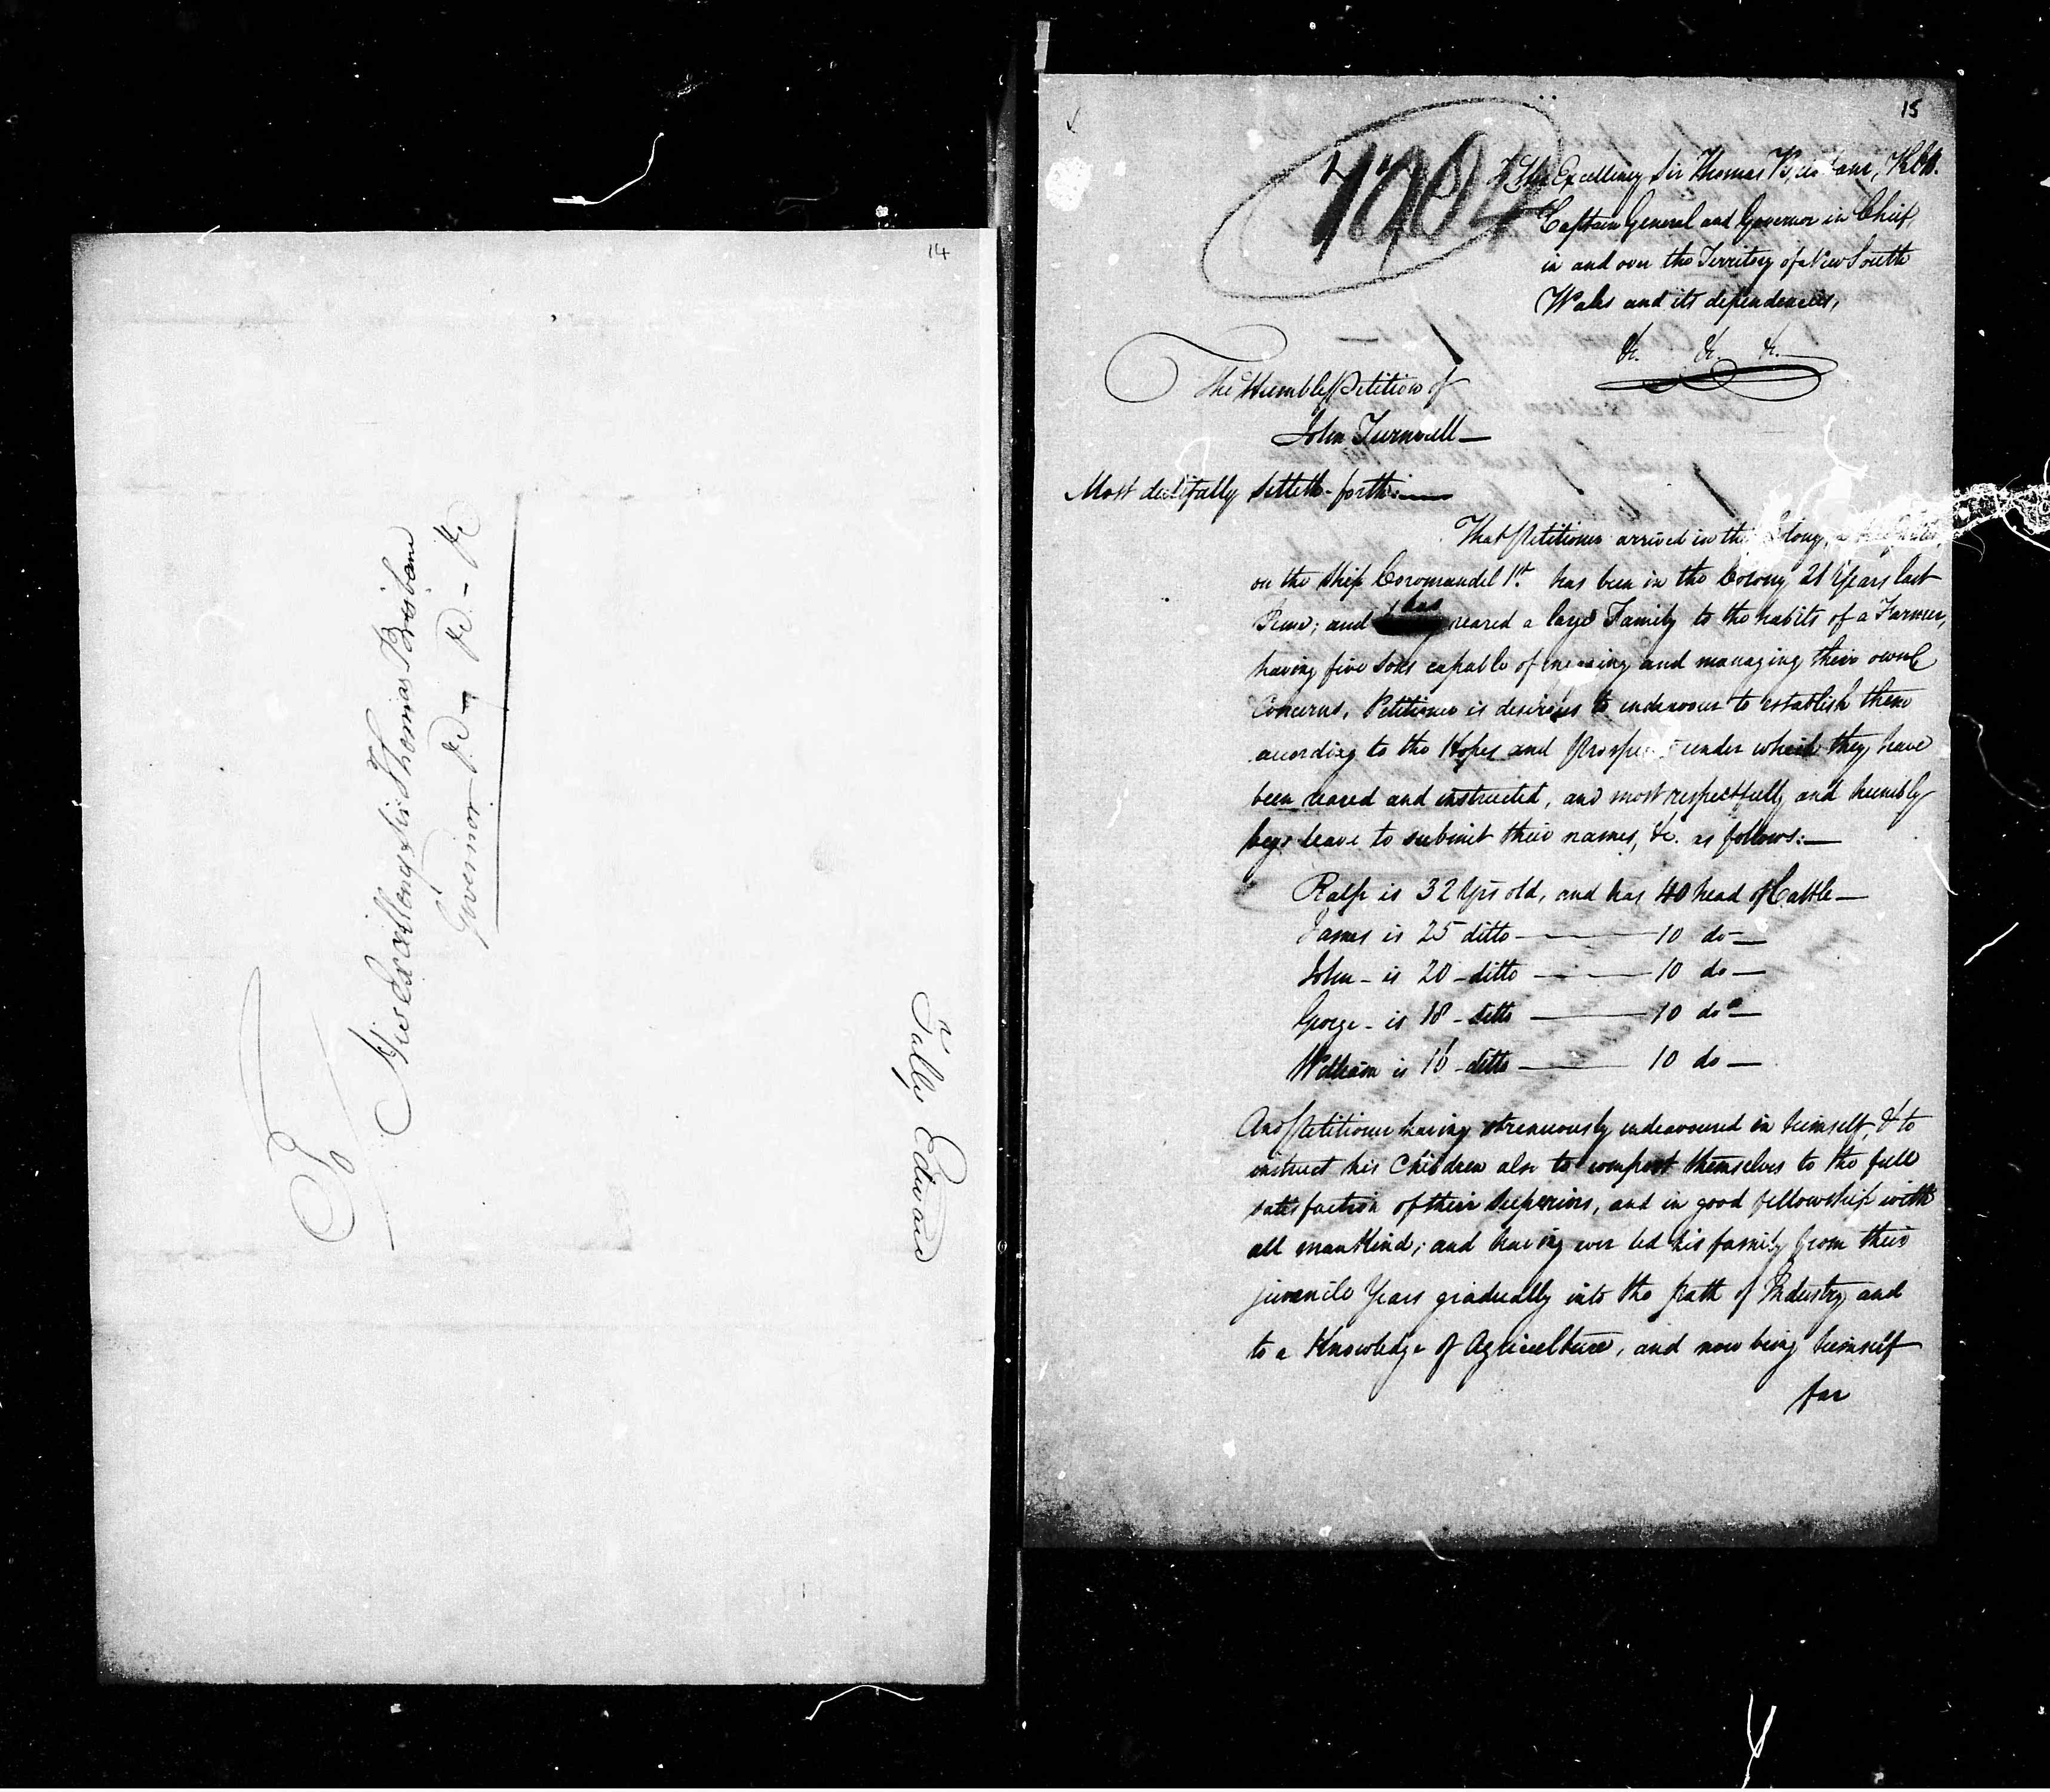 14
To
His Excellency Sir Thomas Brisbane
Governor &c - &c - &c
Tally Edward
15
To His Excellency Sir Thomas Brisbane, K.C.B.
Captain General and Governor in Chief,
in and over the Territory of New South
Wales and its dependencies,
&c. &c. &c.
The Humble Petition of
John Turnbull —
Most dutifully setteth-forth: —
That Petitioner arrived in the Colony,
on the Ship Coromandel 1st. has been in the Colony 21 Years last
June; and has reared a large Family to the habits of a Farmer,
having five Sons capable of and managing their own
Concerns, Petitioner is desirous to endeavour to establish them
according to the Hopes and Prospects under which they have
been reared and instructed, and most respectfully and humbly
begs leave to submit their names, &c. as follows: —
Ralph is 32 Yrs old, and has 40 head of Cattle —
James is 25 ditto — 10 do —
John - is 20 - ditto — 10 do —
George - is 18 - ditto — 10 do —
William is 16 - ditto — 10 do —
And Petitioner having strenuously endeavoured in himself, & to
instruct his Children also to comport themselves to the full
satisfaction of their Superiors, and in good fellowship with
all mankind; and having ever led his family from their
juvenile Years gradually into the path of Industry and
to a Knowledge of Agriculture, and now being himself
far